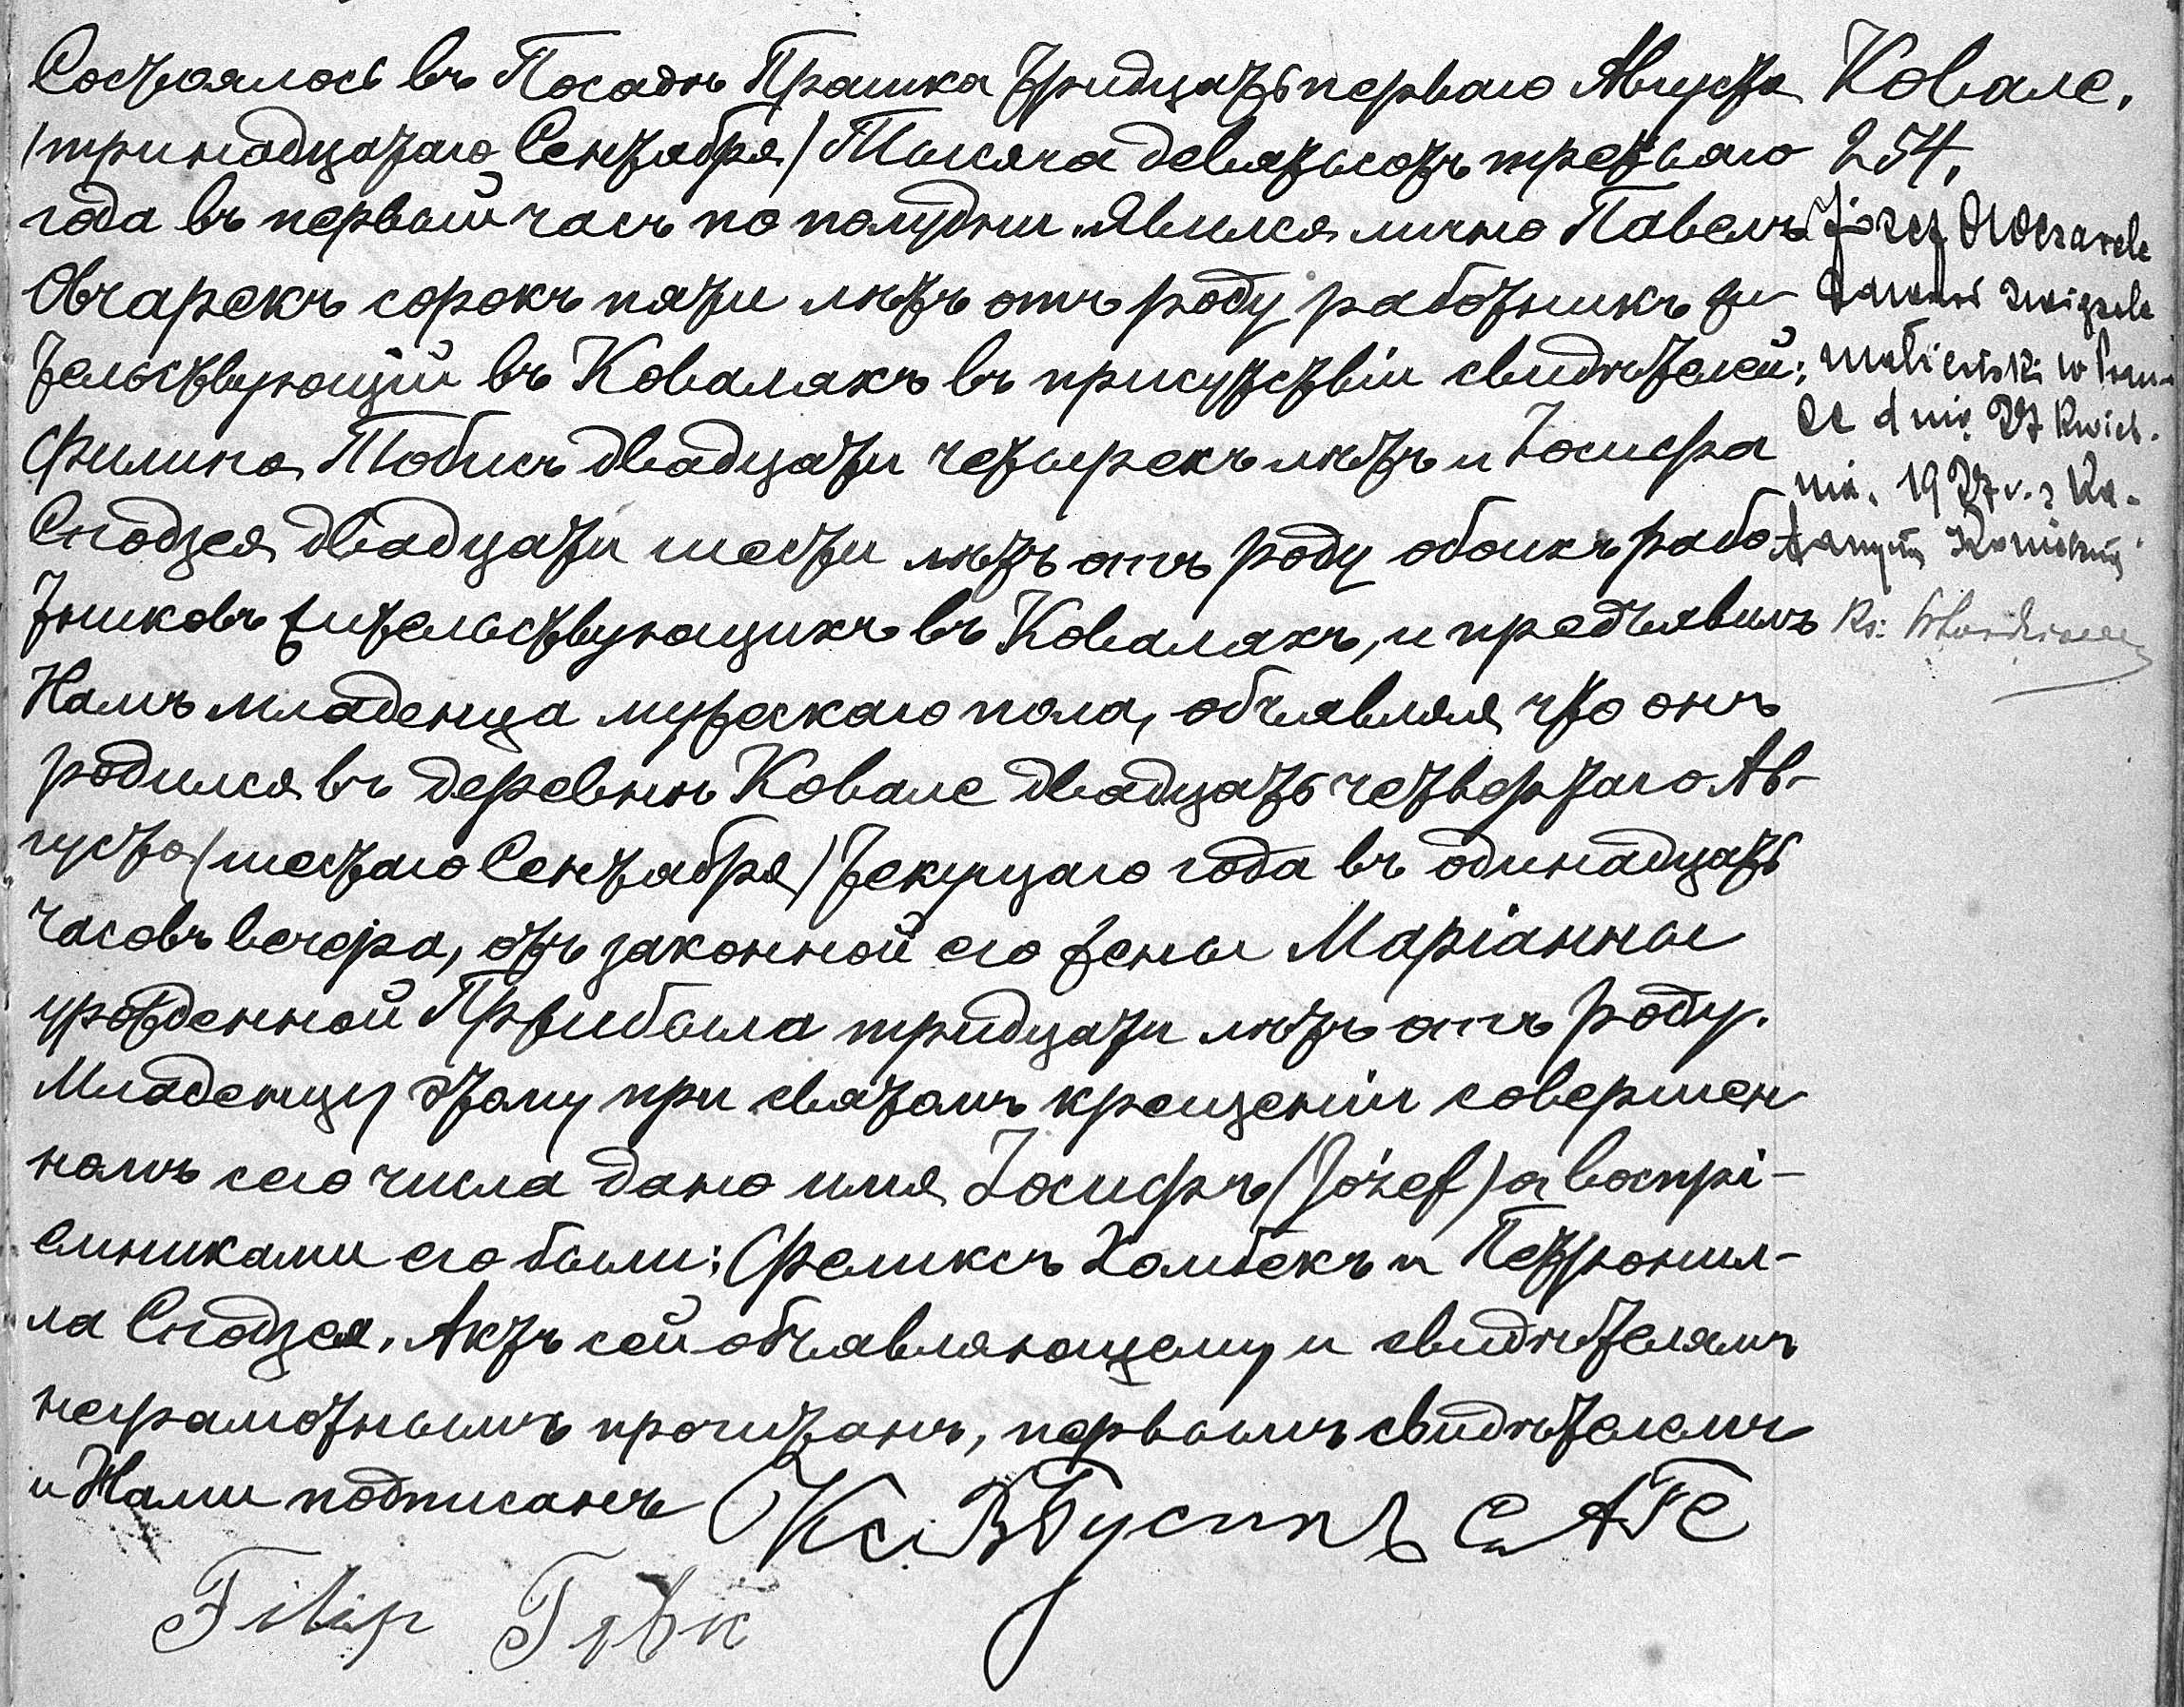 Состоялось въ Посадѣ Прашка тридцать перваго Августа
/тринадцатаго Сентября/ Тысяча девятьсотъ третьяго
года въ первый часъ по полудни. Явился лично Павелъ
Овчарекъ сорокъ пяти лѣтъ отъ роду работникъ жи
тельствующій въ Ковалахъ въ присутствіи свидѣтелей:
Филипа Тобисъ двадцати четырехъ лѣтъ и Іосифа
Сподзея двадцати шести лѣтъ отъ роду обоихъ рабо
тниковъ жительствующихъ въ Ковалахъ, и предъявилъ
Намъ младенца мужескаго пола, объявляя что онъ
родился въ деревнѣ Ковале двадцать четвертаго Ав-
густа /шестаго Сентября/ текущаго года въ одинадцать
часовъ вечера, отъ законной его жены Маріанны
урожденной Пржибыла тридцати лѣтъ отъ роду.
Младенцу этому при святомъ крещеніи совершен
номъ сего числа дано имя Іосифъ (Józef) а воспрі-
емниками его были: Феликсъ Хомбекъ и Петронил-
ла Сподзея. Актъ сей объявляющему и свидѣтелямъ
неграмотнымъ прочитанъ, первымъ свидѣтелемъ
и Нами подписанъ
Filip
Ковале.
254.
Józef Owczarek
zawarł związek
małżeński w
ce dnia 27 kwiet-
nia 1927 r. z Ka-
tarzyną
Ks.